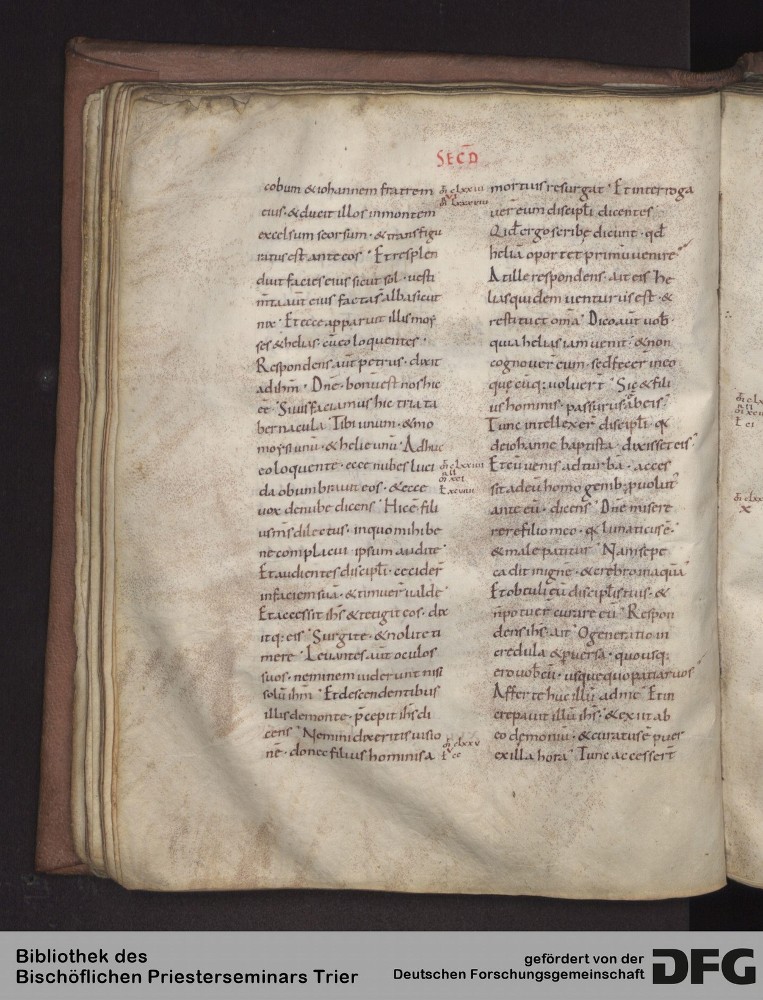 SECD
cobum & iohannem fratrem
eius · & ducit illos inmontem
excelsum seorsum · & transfigu
ratus est ante eos · Et resplen
duit facies eius sicut sol · uesti
mta aut eius facta s̄ alba sicut
nix · Et ecce apparuit illis moy
ses & helias · cū eo loquentes ·
Respondens aūt petrus · dixit
ad ihm̄ · Dnē · bonū est nos hic
eē · Si uis faciamus hic tria ta
bernacula · Tibi unum · & mo
moysi unū · & helie unū · Adhuc
eo loquente · ecce nubes luci
da obumbrauit eos · & ecce
uox de nube dicens · Hic ē fili
us ms̄ dilectus · in quo mihi be
ne complacui ipsum audite
Et audientes discipłi · cecider̄
in faciem suā · & timuer̄ ualde
Et accessit ihs̄ & tetigit eos · dix
itq: eis · Surgite · & nolite ti
mere · Leuantes aūt oculos
suos · neminem uiderunt nisi
solū ihm̄ · Et descendentibus
illis de monte · p̄cepit ihs̄ di
cens · Nemini dixeritis uisio
nē · donec filius hominis a
mortuis resurgat · Et interroga
uer̄ eum discipłi dicentes
Qid ergo scribę dicunt · qđ
heliā oportet primū uenire
At ille respondens · ait eis · he
lias quidem uenturus est · &
restituet om̄a · Dico aūt uob̄
quia helias iam uenit · & non
cognouer̄ eum · sed fecer̄ in eo
quęcūq: uoluer̄t · Sic & fili
us hominis · passurus ē ab eis ·
Tunc intellexer̄ discipłi · qa
de iohanne baptista · dixisset eis ·
Et cū uenis ad turbā · acces
sit ad eū homo genib; puolut
ante eū · dicens · Dnē misere
rere filio meo · qa lunaticus ē ·
& male patitur · Nam sepe
cadit in ignē · & crebro in aquā
Et obtuli eū discipłis tuis · &
ñ potuer̄ curare eū · Respon
dens ihs̄ · ait · O generatio in
credula & puersa · quousq:
ero uobcū · usquequo patiar uos
Afferte huc illū ad me · Et in
crepauit illū ihs̄ · & exiit ab
eo demoniū · & curatus ē puer
ex illa hora · Tunc accesser̄t
Bibliothek des
Bischöflichen Priesterseminars Trier
gefördert von der
Deutschen Forschungsgemeinschaft
DFG